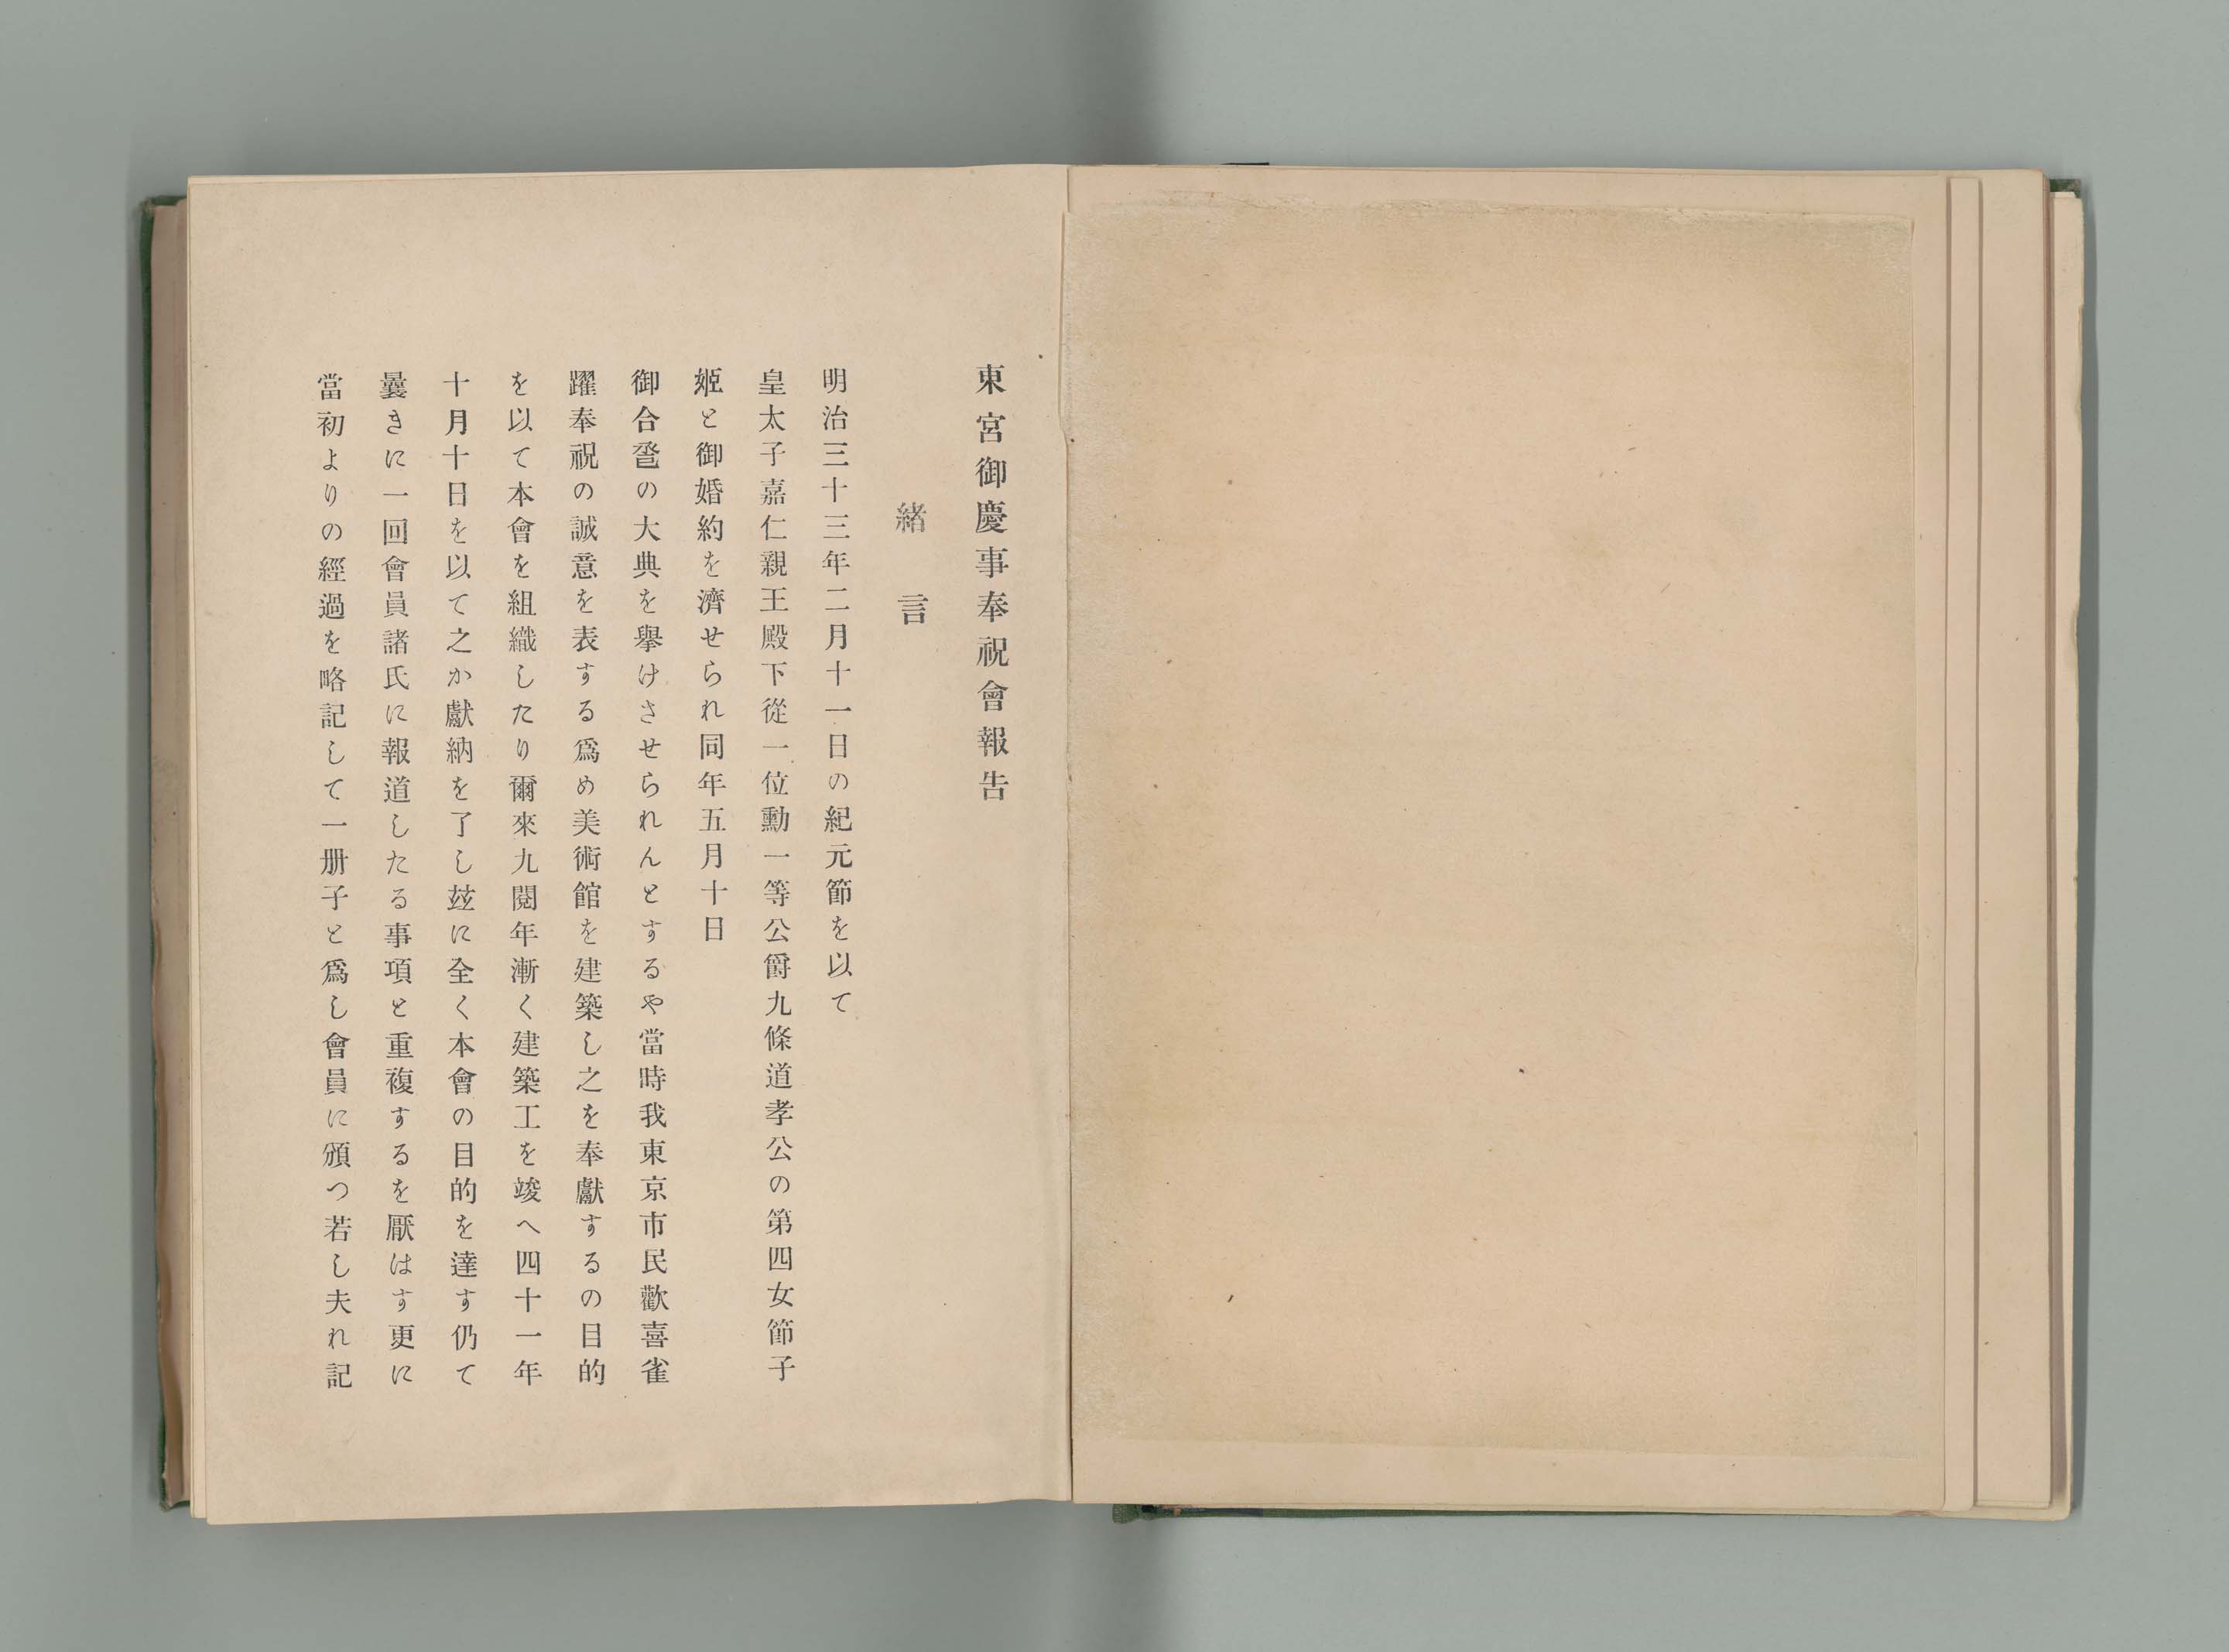 東宮御慶事奉祝會報告
緖言
明治三十三年二月十一日の紀元節を以て
皇太子嘉仁親王殿下從一位勳一等公爵九條道孝公の第四女節子
姬と御婚約を濟せられ同年五月十日
御合巹の大典を擧けさせられんとするや當時我東京市民歡喜雀
躍奉祝の誠意を表する爲め美術館を建築し之を奉獻するの目的
を以て本會を組織したり爾來九閱年漸く建築工を竣へ四十一年
十月十日を以て之か獻納を了し玆に全く本會の目的を達す仍て
曩きに一回會員諸氏に報道したる事項と重複するを厭はす更に
當初よりの經過を略記して一册子と爲し會員に頒つ若し夫れ記